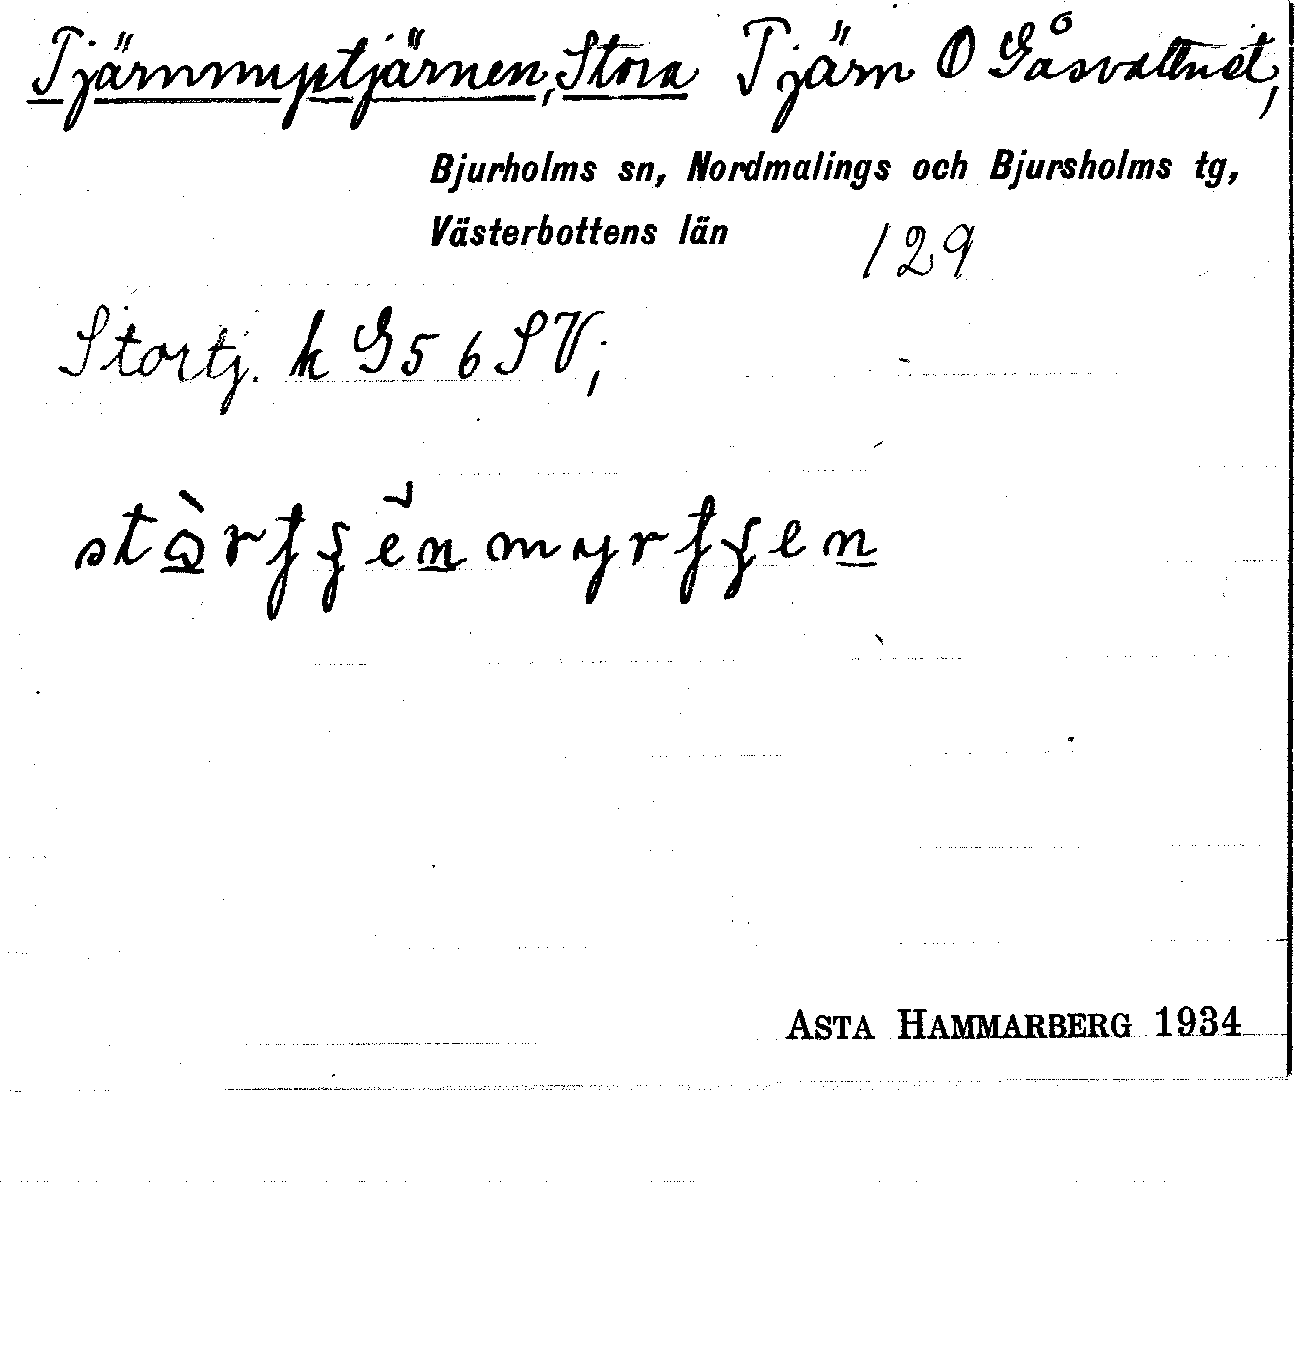 Tjärnmyrtjärnen, Stora Tjärn O Gåsvattnet,
Bjurholms sn, Nordmalings och Bjursholms tg,
Västerbottens län 129
Stortj. k G56 SV;
ASTA HAMMARBERG 1934